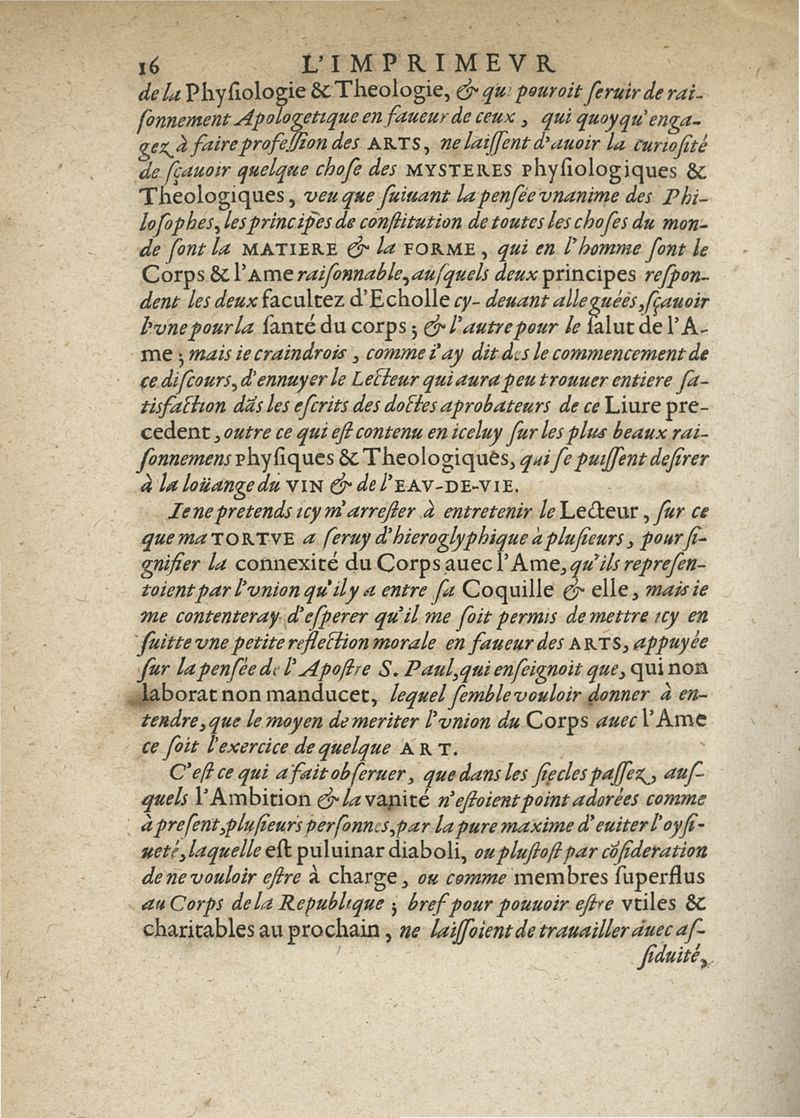 16 L'IMPRIMEVR
de la Physiologie & Theologie, & qui pouroit seruir de rai-
sonnement Apologetique en faueur de ceux, qui quoy qu'enga-
gez à faire profession des ARTS, ne laissent d'auoir la curiosité
de sçauoir quelque chose des MYSTERES Physiologiques &
Theologiques, veu que suiuant la pensée vnanime des Phi-
losophes, les principes de constitution de toutes les choses du mon-
de sont la MATIERE & la FORME, qui en l'homme sont le
Corps & l'Ame raisonnable, ausquels deux principes respon-
dent les deux facultez d'Echolle cy-deuant alleguées, sçauoir
l'vne pour la santé du corps ; & l'autre pour le salut de l'A-
me ; mais ie craindrois, comme i'ay dit des le commencement de
ce discours, d'ennuyer le Lecteur qui aura peu trouuer entiere sa-
tisfaction dãs les escrits des doctes aprobateurs de ce Liure pre-
cedent, outre ce qui est contenu en iceluy sur les plus beaux rai-
sonnemens Physiques & Theologiques, qui se puissent desirer
à la loüange du VIN & de l'EAV-DE-VIE.
Ie ne pretends icy m'arrester à entretenir le Lecteur, sur ce
que ma TORTVE a seruy d'hieroglyphique à plusieurs, pour si-
gnifier la connexité du Corps auec l'Ame, qu'ils represen-
toient par l'vnion qu'il y a entre sa Coquille & elle, mais ie
me contenteray d'esperer qu'il me soit permis de mettre icy en
suitte vne petite reflection morale en faueur des ARTS, appuyée
sur la pensée de l'Apostre S. Paul, qui enseignoit que, qui non
laborat non manducet, lequel semble vouloir donner à en-
tendre, que le moyen de meriter l'vnion du Corps auec l'Ame
ce soit l'exercice de quelque ART.
C'est ce qui a fait obseruer, que dans les siecles passez, aus-
quels l'Ambition & la vanité n'estoient point adorées comme
à present, plusieurs personnes, par la pure maxime d'euiter l'oysi-
ueté, laquelle est puluinar diaboli, ou plustost par cõsideration
de ne vouloir estre à charge, ou comme membres superflus
au Corps de la Republique ; bref pour pouuoir estre vtiles &
charitables au prochain, ne laissoient de trauailler auec as-
siduité,